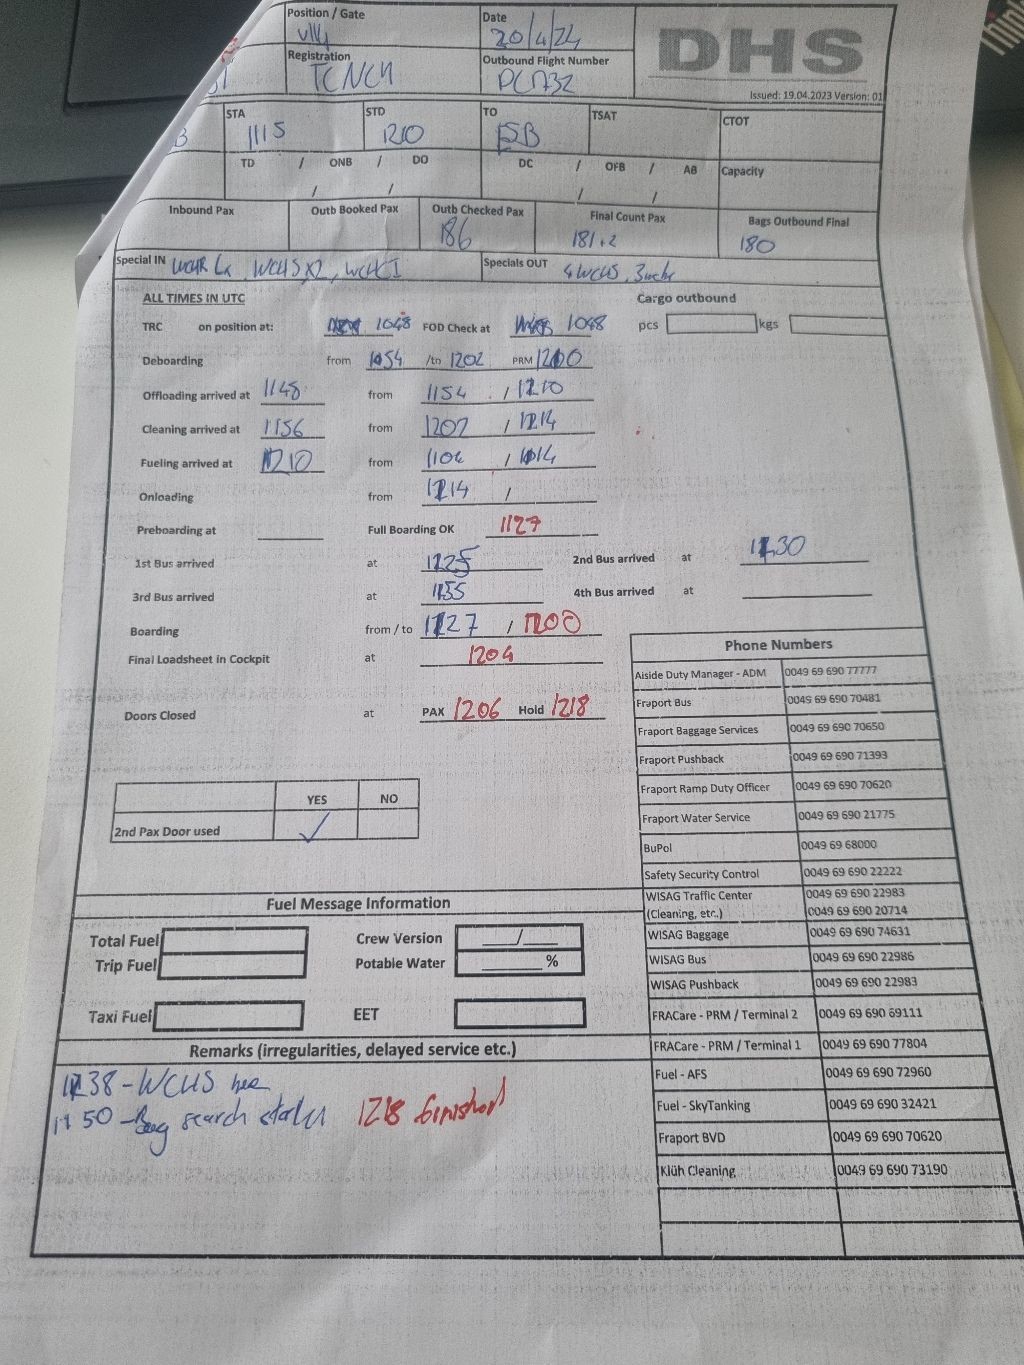 Position / Gate
V114
Date
20/4/24
DHS
Registration
TCNCH
Outbound Flight Number
PC1732
Issued: 19.04.2023 Version: 01
STA
1115
STD
1210
TO
ESB
TSAT
CTOT
TD / ONB / DO
DC / OFB / AB
Capacity
/ /
/ /
Inbound Pax
Outb Booked Pax
Outb Checked Pax
186
Final Count Pax
181+2
Bags Outbound Final
180
Special IN WCHS x2, WCHC 1
Specials OUT 4 WCHS, 3
ALL TIMES IN UTC
Cargo outbound
TRC on position at: 1048 FOD Check at 1048 pcs kgs
Deboarding from 1054 /to 1202 PRM 1200
Offloading arrived at 1148 from 1154 / 1210
Cleaning arrived at 1156 from 1202 / 1214
Fueling arrived at 1210 from /
Onloading from 1214 /
Preboarding at Full Boarding OK 1127
1st Bus arrived at 1125 2nd Bus arrived at 1130
3rd Bus arrived at 1155 4th Bus arrived at
Boarding from / to 1127 / 1200
Final Loadsheet in Cockpit at 1204
Doors Closed at PAX 1206 Hold 1218
YES NO
2nd Pax Door used ✓
Phone Numbers
Aiside Duty Manager - ADM 0049 69 690 77777
Fraport Bus 0049 69 690 70481
Fraport Baggage Services 0049 69 690 70650
Fraport Pushback 0049 69 690 71393
Fraport Ramp Duty Officer 0049 69 690 70620
Fraport Water Service 0049 69 690 21775
BuPol 0049 69 68000
Safety Security Control 0049 69 690 22222
WISAG Traffic Center 0049 69 690 22983
(Cleaning, etc.) 0049 69 690 20714
WISAG Baggage 0049 69 690 74631
WISAG Bus 0049 69 690 22986
WISAG Pushback 0049 69 690 22983
FRACare - PRM / Terminal 2 0049 69 690 69111
FRACare - PRM / Terminal 1 0049 69 690 77804
Fuel - AFS 0049 69 690 72960
Fuel - SkyTanking 0049 69 690 32421
Fraport BVD 0049 69 690 70620
Klüh Cleaning 0049 69 690 73190
Fuel Message Information
Total Fuel
Trip Fuel
Crew Version /
Potable Water %
Taxi Fuel
EET
Remarks (irregularities, delayed service etc.)
1138 - WCHS
1150 - Bag search started 1218 finished
Think